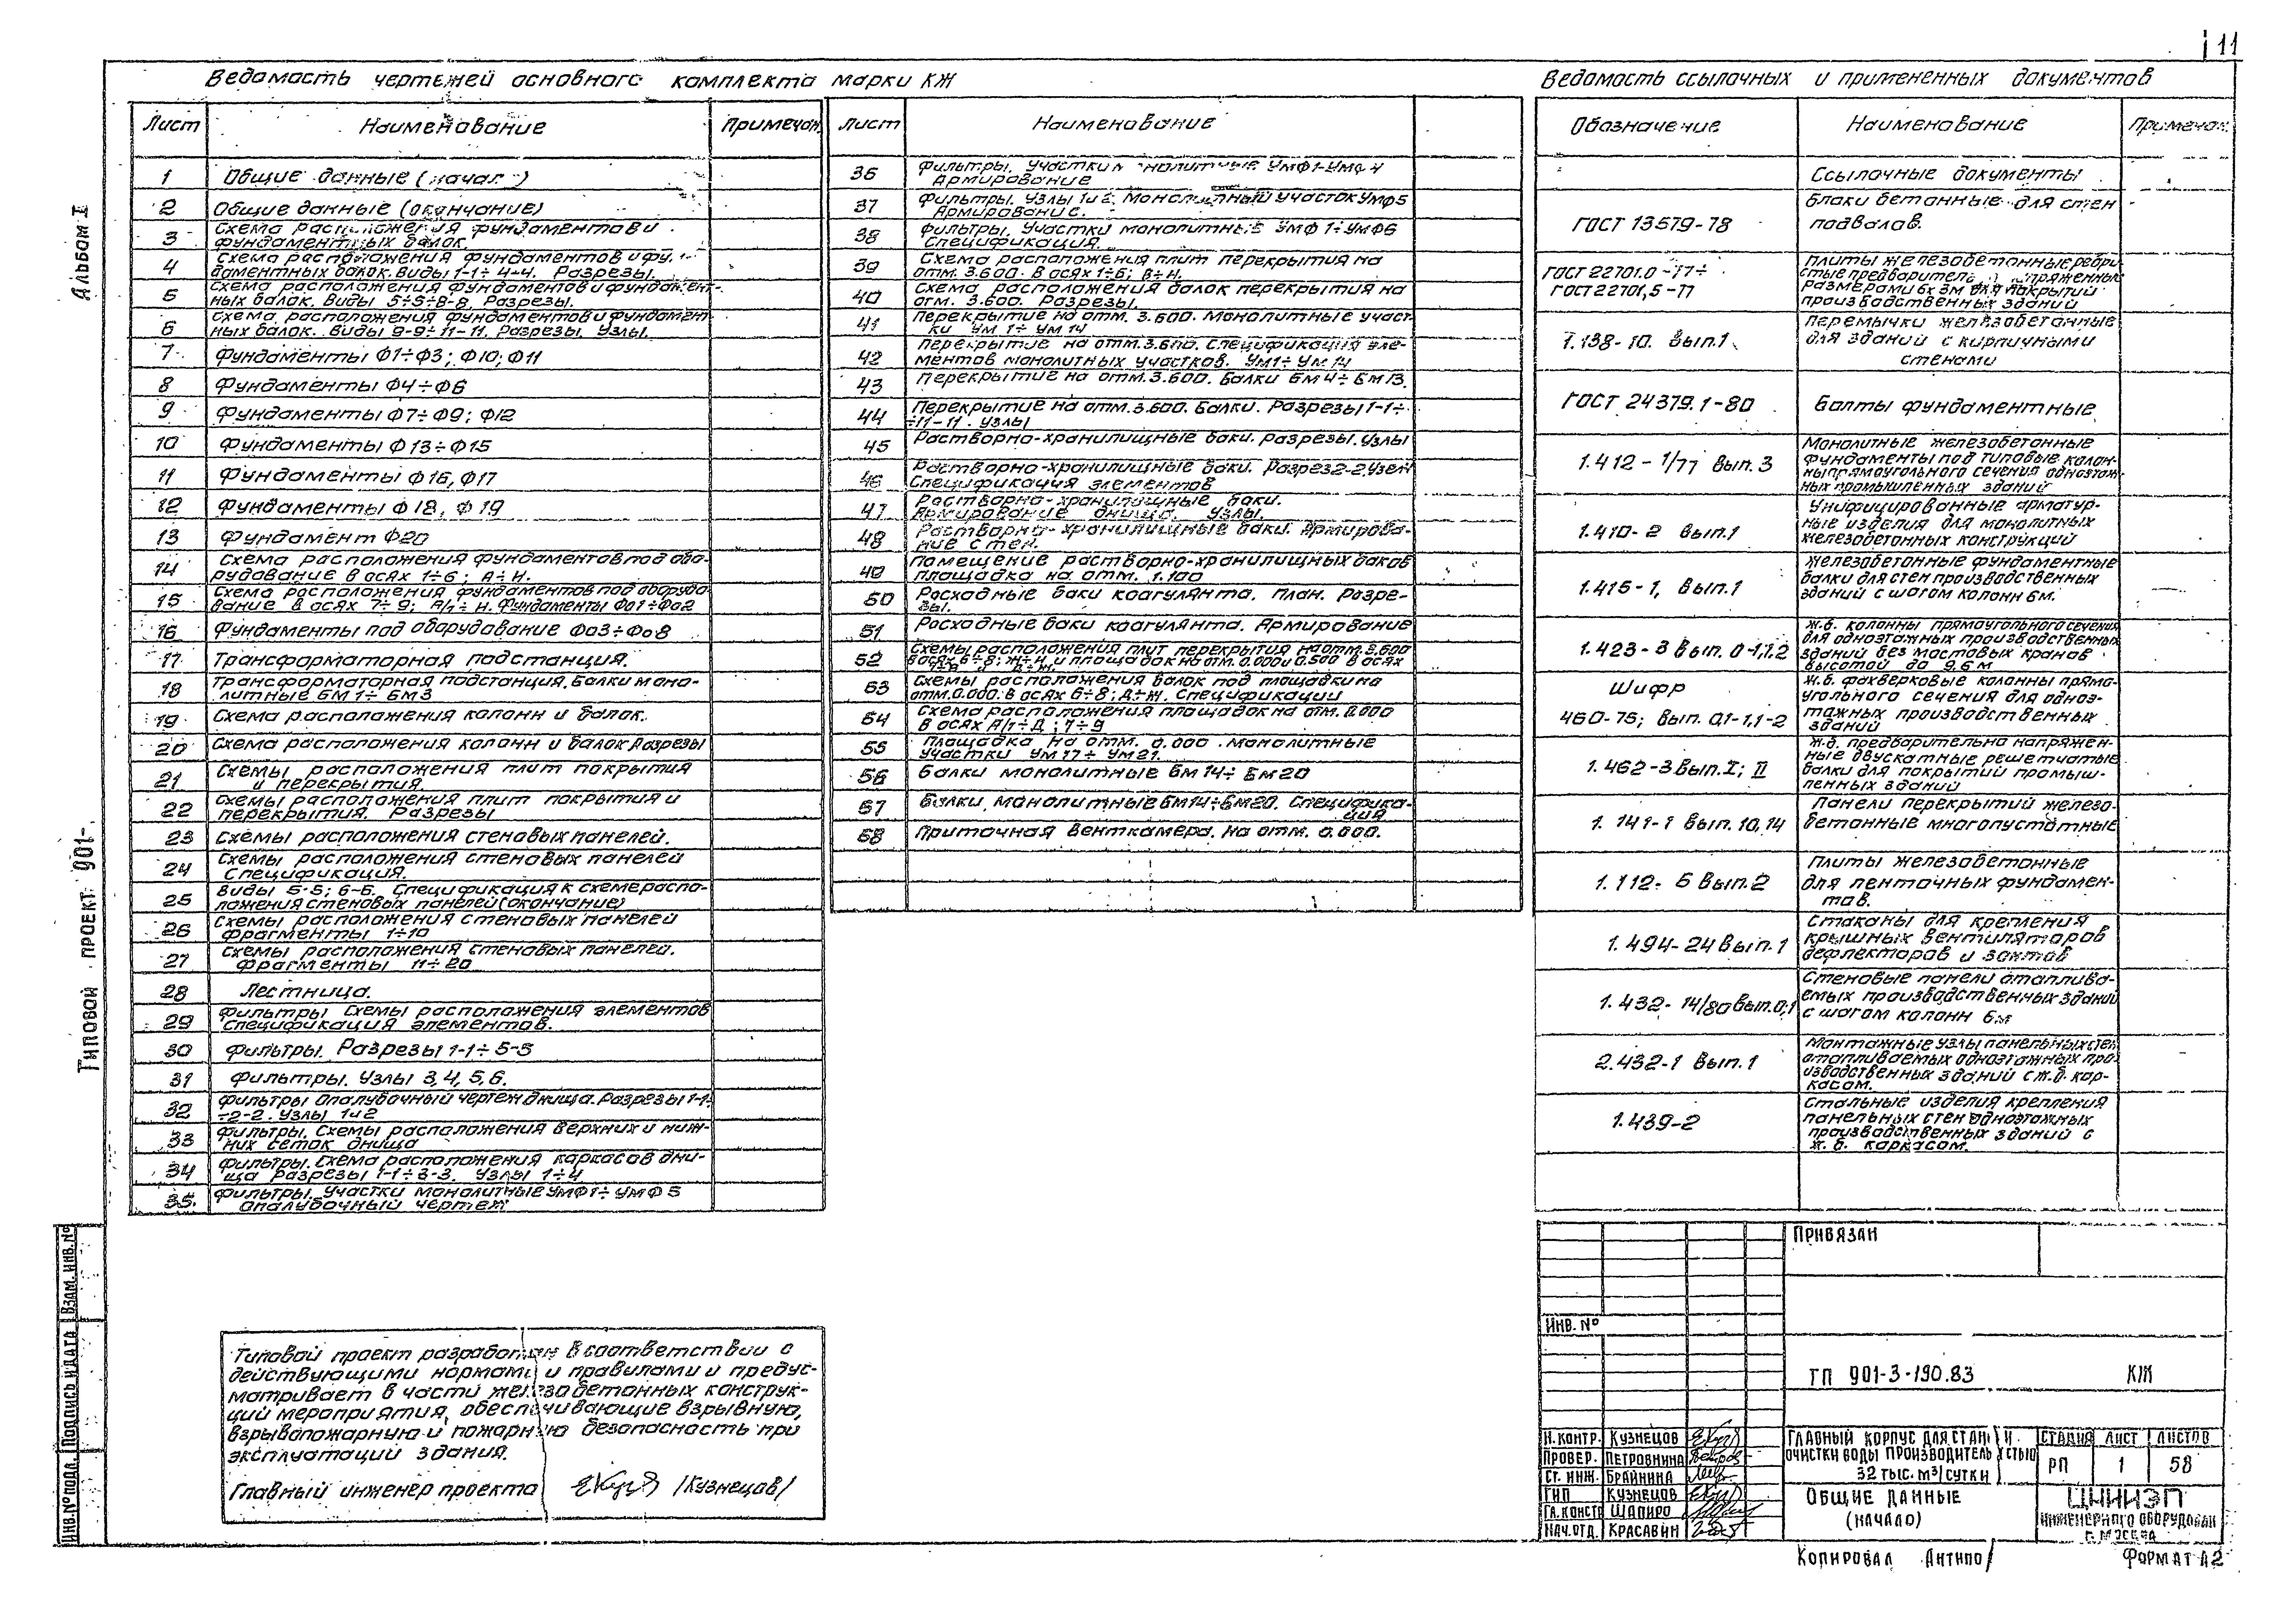 11
Ведомость чертежей основного комплекта марки КЖ
Лист Наименование Примечан.
1 Общие данные (начал )
2 Общие данные (окончание)
3 Схема расположения фундаментов и
фундаментных балок.
4 Схема расположения фундаментов и фу
даментных балок. Виды 1-1÷4-4. Разрезы.
5 Схема расположения фундаментов и фундамент-
ных балок. Виды 5-5÷8-8. Разрезы.
6 Схема расположения фундаментов и фундамент-
ных балок. Виды 9-9÷11-11. Разрезы. Узлы.
7 Фундаменты Ф1÷Ф3; Ф10; Ф11
8 Фундаменты Ф4÷Ф6
9 Фундаменты Ф7÷Ф9; Ф12
10 Фундаменты Ф13÷Ф15
11 Фундаменты Ф16, Ф17
12 Фундаменты Ф18, Ф19
13 Фундамент Ф20
14 Схема расположения фундаментов под обо-
рудование в осях 1÷6; А÷Н.
15 Схема расположения фундаментов под оборудо-
вание в осях 7÷9; А/1÷Н. Фундаменты Фо1÷Фо2
16 Фундаменты под оборудование Фо3÷Фо8
17 Трансформаторная подстанция.
18 Трансформаторная подстанция. Балки моно-
литные БМ1÷БМ3
19 Схема расположения колонн и балок.
20 Схема расположения колонн и балок Разрезы
21 Схемы расположения плит покрытия
и перекрытия.
22 Схемы расположения плит покрытия и
перекрытия. Разрезы
23 Схемы расположения стеновых панелей.
24 Схемы расположения стеновых панелей
Спецификация.
25 Виды 5-5; 6-6. Спецификация к схеме распо-
ложения стеновых панелей (окончание)
26 Схемы расположения стеновых панелей
Фрагменты 1÷10
27 Схемы расположения стеновых панелей.
Фрагменты 11÷20
28 Лестница.
29 Фильтры Схемы расположения элементов
Спецификация элементов.
30 Фильтры. Разрезы 1-1÷5-5
31 Фильтры. Узлы 3,4,5,6.
32 Фильтры Опалубочный чертеж днища. Разрезы 1-1÷
÷2-2. Узлы 1и2
33 Фильтры. Схемы расположения верхних и ниж-
них сеток днища
34 Фильтры. Схема расположения каркасов дни-
ща Разрезы 1-1÷3-3. Узлы 1÷4
35. Фильтры. Участки монолитные УМФ1÷УМФ5
Опалубочный чертеж
Лист Наименование
36 Фильтры. Участки монолитные УМФ1÷УМФ4
Армирование
37 Фильтры. Узлы 1и2. Монолитный участок УМФ5
Армирование.
38 Фильтры. Участки монолитные УМФ1÷УМФ6
Спецификация.
39 Схема расположения плит перекрытия на
отм. 3.600. в осях 1÷6; В÷Н.
40 Схема расположения балок перекрытия на
отм. 3.600. Разрезы.
41 Перекрытие на отм. 3.600. Монолитные участ-
ки УМ1÷УМ14
42 Перекрытие на отм. 3.600. Спецификация эле-
ментов монолитных участков. УМ1÷УМ14
43 Перекрытие на отм. 3.600. Балки БМ4÷БМ13.
44 Перекрытие на отм. 3.600. Балки. Разрезы 1-1÷
÷11-11. Узлы
45 Растворно-хранилищные баки. Разрезы. Узлы
46 Растворно-хранилищные баки. Разрез 2-2. Узел
Спецификация элементов
47 Растворно-хранилищные баки.
Армирование днища. Узлы.
48 Растворно-хранилищные баки. Армирова-
ние стен.
49 Помещение растворно-хранилищных баков
площадка на отм. 1.100
50 Расходные баки коагулянта. План. Разре-
зы.
51 Расходные баки коагулянта. Армирование
52 Схемы расположения плит перекрытия на отм. 3.600
в осях 6÷8; Ж÷Н и площадок на отм. 0.000 и 0.500 в осях
53 Схемы расположения балок под площадки на
отм. 0.000. в осях 6÷8; Д÷Ж. Спецификации
54 Схема расположения площадок на отм. 0.000
в осях А/1÷Д; 7÷9
55 Площадка на отм. 0.000. Монолитные
участки УМ17÷УМ21.
56 Балки монолитные БМ14÷БМ20
57 Балки монолитные БМ14÷БМ20. Специфика-
ция
58 Приточная венткамера. На отм. 0.000.
Ведомость ссылочных и примененных документов
Обозначение Наименование Примечан.
Ссылочные документы
ГОСТ 13579-78 Блоки бетонные для стен
подвалов.
ГОСТ 22701.0-77÷
ГОСТ 22701,5-77
Плиты железобетонные ребри-
стые предварительно напряженные
размерами 6х3м для покрытий
производственных зданий
1.138-10. Вып.1 Перемычки железобетонные
для зданий с кирпичными
стенами
ГОСТ 24379.1-80 Болты фундаментные
1.412-1/77 Вып. 3 Монолитные железобетонные
фундаменты под типовые колон-
ны прямоугольного сечения одноэтаж-
ных промышленных зданий
1.410-2 Вып.1 Унифицированные арматур-
ные изделия для монолитных
железобетонных конструкций
1.415-1, Вып.1 Железобетонные фундаментные
балки для стен производственных
зданий с шагом колонн 6м.
1.423-3 Вып. 0-1,1.2 Ж.б. колонны прямоугольного сечения
для одноэтажных производственных
зданий без мостовых кранов
высотой до 9.6м
Шифр
460-75; вып. 0,1-1,1-2
Ж.б. фахверковые колонны прямо-
угольного сечения для одноэ-
тажных производственных
зданий
1.462-3 Вып.I; II Ж.б. предварительно напряжен-
ные двускатные решетчатые
балки для покрытий промыш-
ленных зданий
1.141-1 Вып. 10,14 Панели перекрытий железо-
бетонные многопустотные
1.112-5 Вып.2 Плиты железобетонные
для ленточных фундамен-
тов.
1.494-24 Вып.1 Стаканы для крепления
крышных вентиляторов
дефлекторов и зонтов
1.432-14/80 Вып.0,1 Стеновые панели отаплива-
емых производственных зданий
с шагом колонн 6м
2.432-1 Вып.1 Монтажные узлы панельных стен
отапливаемых одноэтажных про-
изводственных зданий с ж.б. кар-
касом.
1.439-2 Стальные изделия крепления
панельных стен одноэтажных
производственных зданий с
ж.б. каркасом.
Альбом I
Типовой проект 901-
Инв.№ подл. Подпись и дата Взам. инв. №
Типовой проект разработан в соответствии с
действующими нормами и правилами и предус-
матривает в части железобетонных конструк-
ций мероприятия, обеспечивающие взрывную,
взрывопожарную и пожарную безопасность при
эксплуатации здания.
Главный инженер проекта /Кузнецов/
Привязан
Инв. №
ТП 901-3-190.83 КЖ
Н.контр. Кузнецов
Провер. Петровнина
Ст. инж. Брайнина
ГИП Кузнецов
Гл.констр Шапиро
Нач.отд. Красавин
Главный корпус для стан и
очистки воды производительностью
32 тыс.м³/сутки
Стадия Лист Листов
РП 1 58
Общие данные
(начало)
ЦНИИЭП
инженерного оборудован
г. Москва
Копировал Антипо
Формат А2